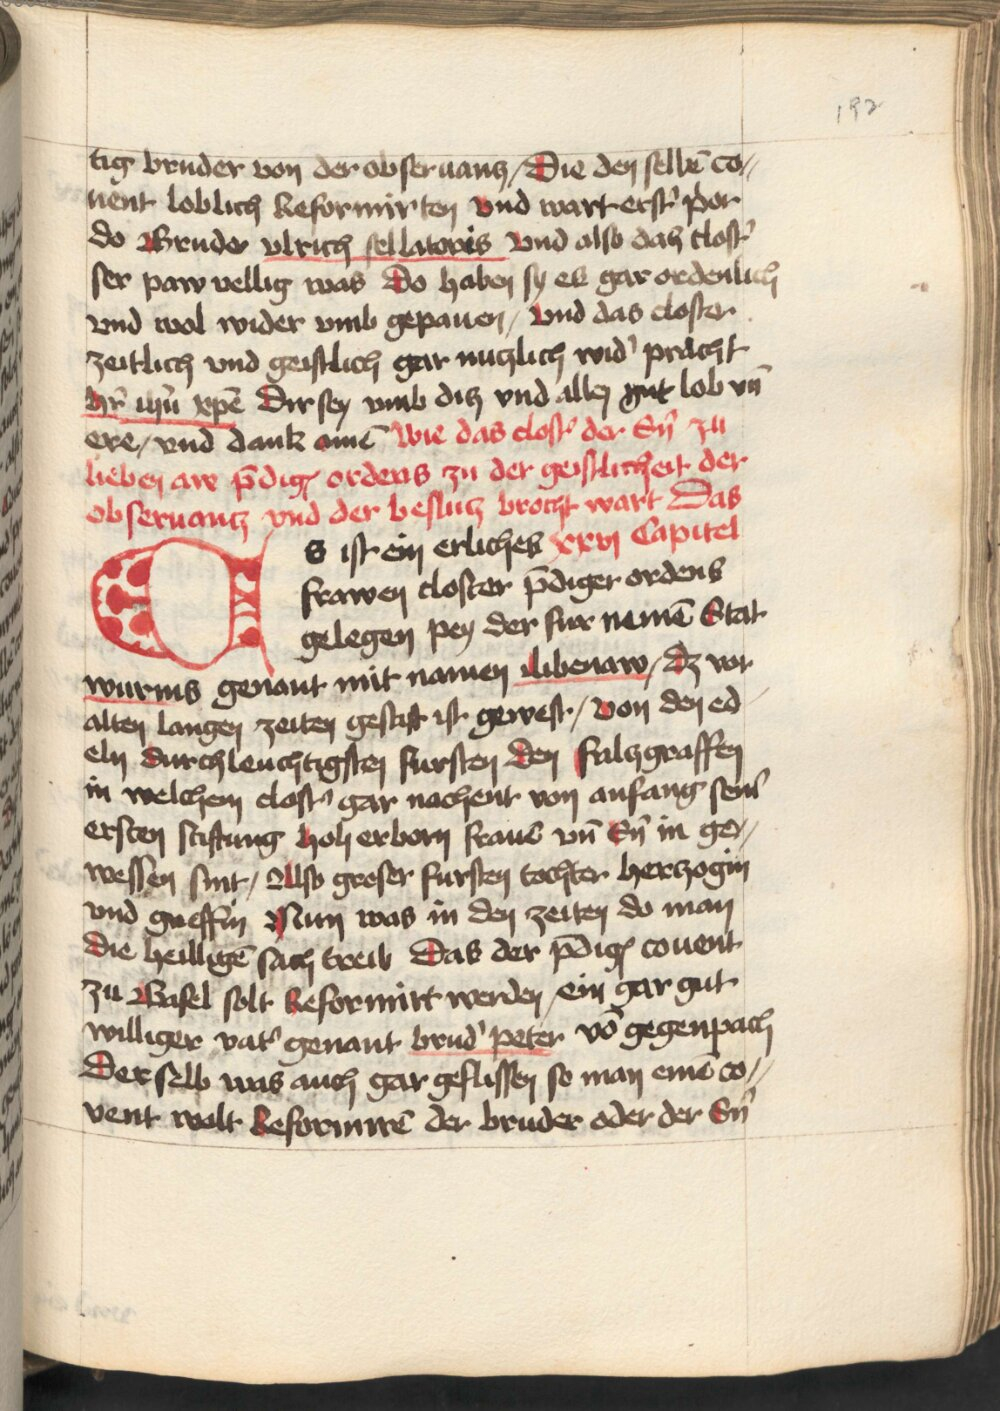 192
tig bruder von der obseruancz / Die den selbē co//
uent loblich Reformirten vnd wart erst' prior
do Bruder vlrich sellatoris vnd also daz clost'
ser paw vellig was Do haben sy es gar ordenlich
vnd wol wider vmb gepauen / vnd das closter
zeitlich vnd geistlich gar nuczlich wid' pracht
h'r ihū xpē Dir sey vmb diz vnd allez gut lob vn̄
ere / vnd dank amē Wie das clost' der Sw̄ zu
lieben aw p̄dig' ordens zu der geistlicheit der
obseruancz vnd der beslucz brocht wart Das
xxvi Capitel
Es ist ein erliches
frawen closter p̄diger ordens
gelegen pey der fur nemē Stat
wurms genant mit namen libenaw / dz vor
alten langen zeiten gestift ist gewest / von den ed
eln durchleuchtigsten fursten den falczgraffen
in welchem clost' gar nachent von anfang sein'
ersten stiftung hoh erborn frauē vn̄ Sw̄ in ge//
wessen sint / Also groser fursten tochter herczogin
vnd greffin Nun was in den zeiten do man
die heilligē sach treib Das der p̄dig' couent
zu Basel solt Reformirt werden / ein gar gut
williger vat' genant brud' peter vō gegenpach
Der selb was auch gar geflissen so man einē co//
vent wolt Reformirē der bruder oder der Sw̄